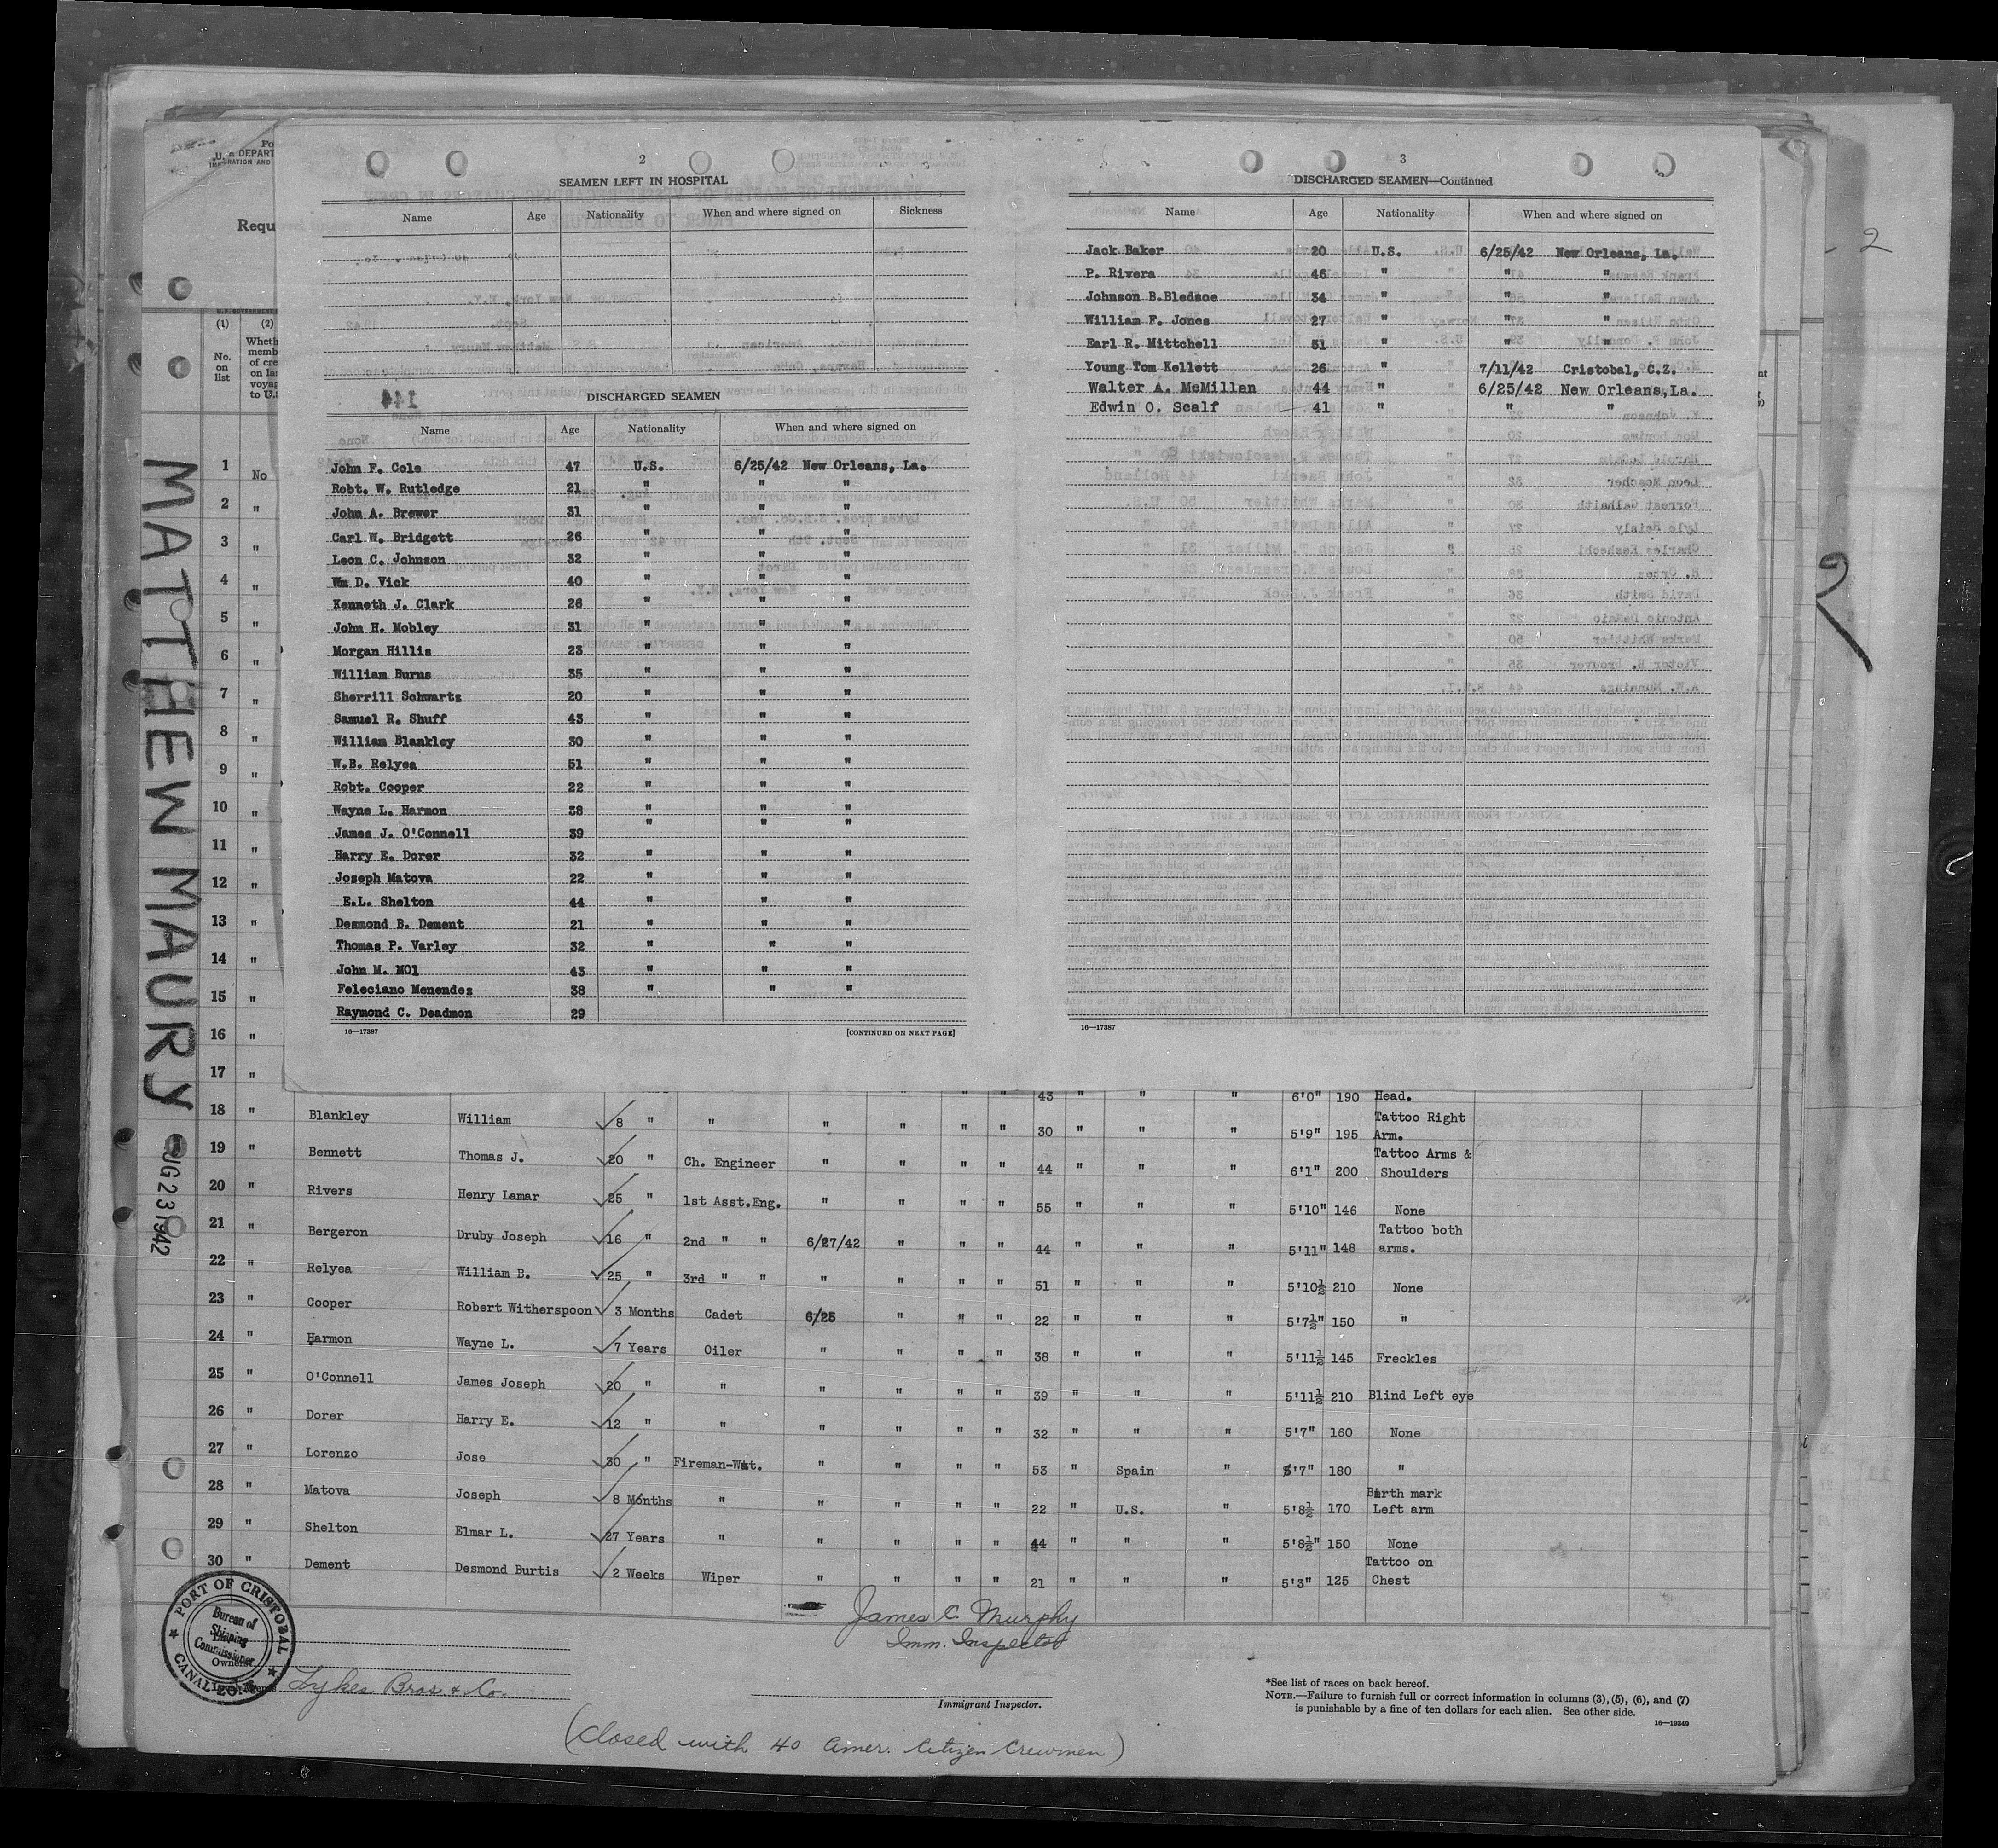 2
SEAMEN LEFT IN HOSPITAL
Name Age Nationality When and where signed on Sickness
DISCHARGED SEAMEN
Name Age Nationality When and where signed on
John F. Cole 47 U.S. 6/25/42 New Orleans, La.
Robt. W. Rutledge 21 " " "
John A. Brewer 31 " " "
Carl W. Bridgett 26 " " "
Leon C. Johnson 32 " " "
Wm D. Vick 40 " " "
Kenneth J. Clark 26 " " "
John H. Mobley 31 " " "
Morgan Hillis 23 " " "
William Burns 35 " " "
Sherrill Schwartz 20 " " "
Samuel R. Shuff 43 " " "
William Blankley 30 " " "
W.B. Relyea 51 " " "
Robt. Cooper 22 " " "
Wayne L. Harmon 38 " " "
James J. O'Connell 39 " " "
Harry E. Dorer 32 " " "
Joseph Matova 22 " " "
E.L. Shelton 44 " " "
Desmond B. Dement 21 " " "
Thomas P. Varley 32 " " "
John M. MOl 43 " " "
Feleciano Menendez 38 " " "
Raymond C. Deadmon 29
16—17387 [CONTINUED ON NEXT PAGE]
3
DISCHARGED SEAMEN—Continued
Name Age Nationality When and where signed on
Jack Baker 20 U.S. 6/25/42 New Orleans, La.
P. Rivera 46 " " "
Johnson B.Bledsoe 34 " " "
William F. Jones 27 " " "
Earl R. Mittchell 51 " " "
Young Tom Kellett 26 " 7/11/42 Cristobal, C.Z.
Walter A. McMillan 44 " 6/25/42 New Orleans,La.
Edwin O. Scalf 41 " " "
16—17387
2
Fo
U. S. DEPART
IMMIGRATION AND
Requ
(1) (2)
No. on list
Wheth
memb
of cre
on las
voyag
to U.S
MATTHEW MAURY
AUG 23 1942
1 No
2 "
3 "
4 "
5 "
6 "
7 "
8 "
9 "
10 "
11 "
12 "
13 "
14 "
15 "
16 "
17 " " " " " 43 " " " 6'0" 190 Head.
18 " Blankley William 8 " " " " " " 30 " " " 5'9" 195 Tattoo Right Arm.
19 " Bennett Thomas J. 20 " Ch. Engineer " " " " 44 " " " 6'1" 200 Tattoo Arms & Shoulders
20 " Rivers Henry Lamar 25 " 1st Asst.Eng. " " " " 55 " " " 5'10" 146 None
21 " Bergeron Druby Joseph 16 " 2nd " " 6/27/42 " " " 44 " " " 5'11" 148 Tattoo both arms.
22 " Relyea William B. 25 " 3rd " " " " " " 51 " " " 5'10½ 210 None
23 " Cooper Robert Witherspoon 3 Months Cadet 6/25 " " " 22 " " " 5'7½" 150 "
24 " Harmon Wayne L. 7 Years Oiler " " " " 38 " " " 5'11½ 145 Freckles
25 " O'Connell James Joseph 20 " " " " " " 39 " " " 5'11½ 210 Blind Left eye
26 " Dorer Harry E. 12 " " " " " " 32 " " " 5'7" 160 None
27 " Lorenzo Jose 30 " Fireman-Wat. " " " " 53 " Spain " 5'7" 180 "
28 " Matova Joseph 8 Months " " " " " 22 " U.S. " 5'8½ 170 Birth mark Left arm
29 " Shelton Elmar L. 27 Years " " " " " 44 " " " 5'8½" 150 None
30 " Dement Desmond Burtis 2 Weeks Wiper " " " " 21 " " " 5'3" 125 Tattoo on Chest
PORT OF CRISTOBAL
Bureau of
Shipping
Commissioner
CANAL ZONE
Owners
Lykes Bros & Co.
James C. Murphy
Imm. Inspector
Immigrant Inspector.
*See list of races on back hereof.
NOTE.—Failure to furnish full or correct information in columns (3), (5), (6), and (7)
is punishable by a fine of ten dollars for each alien. See other side.
16—19349
(Closed with 40 Amer. Citizen Crewmen)